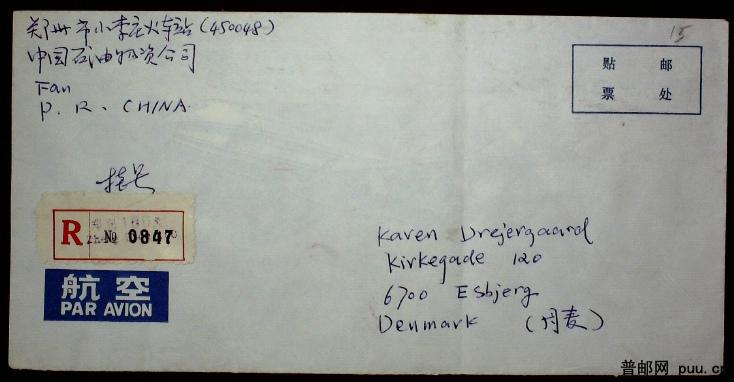 郑州市小李庄火车站(450048)
中国石油物资公司
Fan
P. R. CHINA
15
贴 邮
票 处
挂号
R № 0847
航空
PAR AVION
Karen Drejergaard
Kirkegade 120
6700 Esbjerg
Denmark (丹麦)
普邮网 puu.c